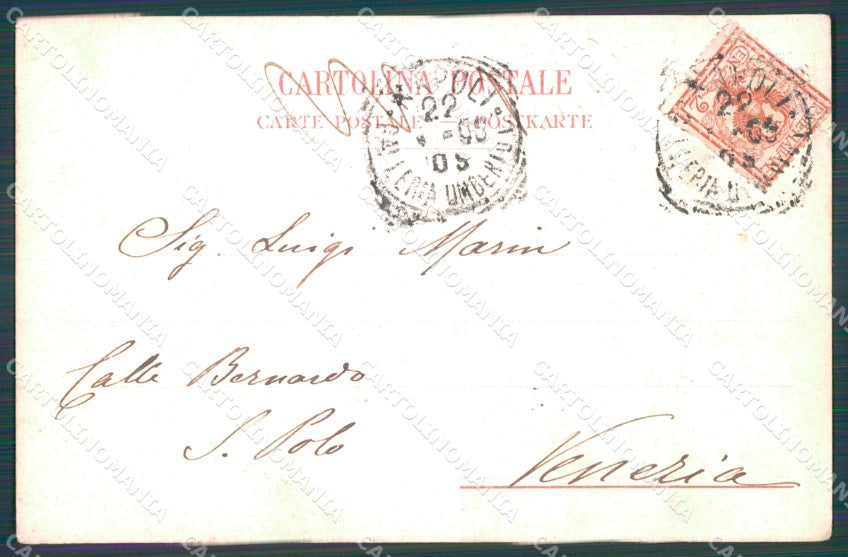 CARTOLINA POSTALE
CARTE POSTALE — POSTKARTE
NAPOLI
22
05
GALLERIA UMBERTO I
NAPOLI
22
05
GALLERIA UMBERTO I
Sig. Luigi Marin
Calle Bernardo
S. Polo
Venezia
CARTOLINOMANIA